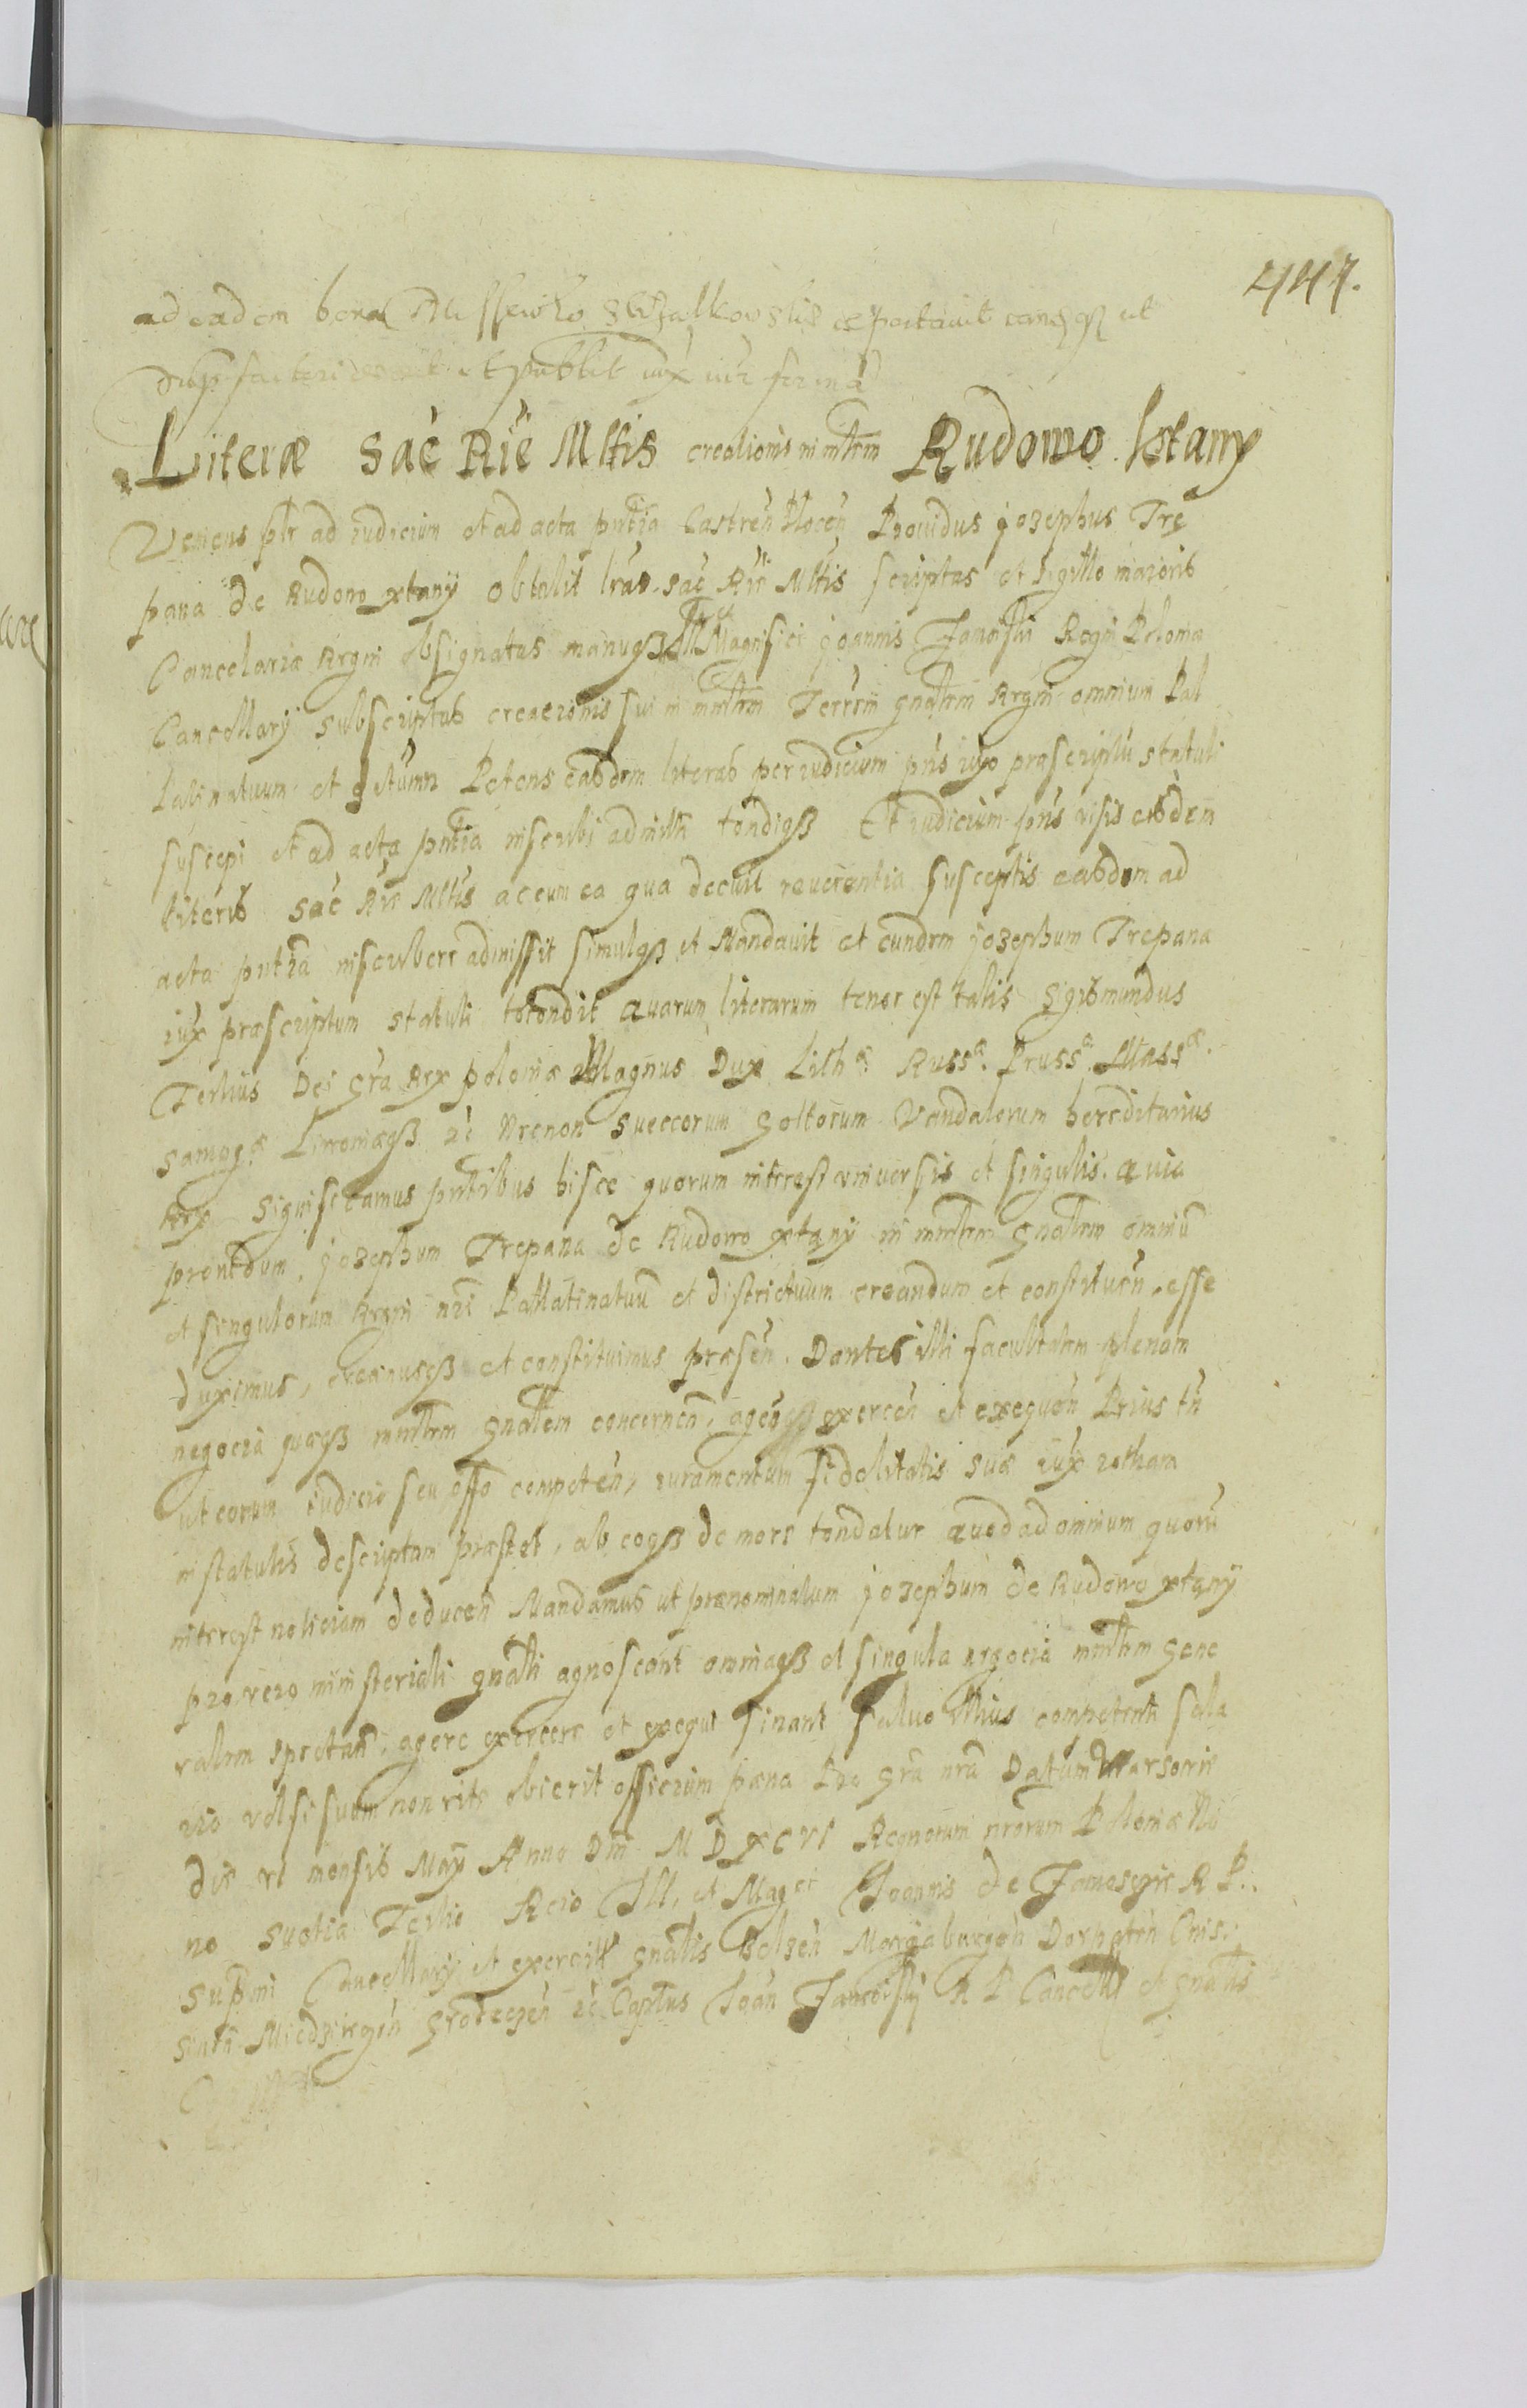 447.
ad eadem bona
et
Literæ Sac Rie Mttis creationis in mltrm Rudowo xtany
Veniens plr ad iudicium et ad acta pntia Castren Plocen Providus Jozephus Tre
pana de Rudowo xtany obtulit lras Sac Rie Mttis scriptas et sigillo maiorib
Cancelariæ Regni obsignatas manuqß Magnifici Joannis Zamoiski Regni Poloniæ
Cancellarÿ subscriptas creacionis sui in mnltrm Terrrm gnalem Regni omnium Pal
latinatuum et Petens easdem literas per iudicium pns iuxo præscriptu statuti
suscepi et ad acta pntia inscribi admitti tondiqß Et iudicium pns visis eisdem
literis Sac Rie Mttis ac cum ea qua decuit reverentia susceptis easdem ad
acta pntia inscribere admissit simulqß et Mandavit et eundem Jozephum Trepana
iux præscriptum statuti totondit Quarum literarum tenor est talis Sigismundus
Tertius Dei gra Rex Poloniæ Magnus Dux Lithæ Russæ Prussæ Massæ.
Samogæ Livoniæqß zc Necnon Sueccorum Gottorum Vandalorum hereditarius
Rex Significamus pntibus hisce quorum interest universis et singulis. Quia
providum Jozephum Trepana de Rudowo xtany in mnltrm gnalem omniu
et singulorum Regni nri Pallatinatuu et districtuum creandum et constituen, esse
duximus, creamusqß et constituimus præsen. Dantes illi facultatem plenam
negocia quæqß mnltrm gnalem concernen, agen exercen et exequen Prius tn
ut coram iudicio seu offo competen, iuramentum fidelitatis suæ iux rotham
in statutis descriptam præstet, ab eoqß de more tondatur Quod ad omnium quoru
interest noticiam deducen Mandamus ut prænominatum Jozephum de Rudowo xtanÿ
pro vero ministeriali gnali agnoscant omniaqß et singula negocia mnltrm gene
ralem spectan, agere exercere et exequi sinant salvo illius competenti sala
rio vel si suum non rite obierit officium pæna Pro gra nra Datum Warsoviæ
die VI mensis Maÿ Anno Dni M D XC VI Regnorum nrorum Poloniæ No
no Suetiæ Tertio Recio Ill. et Magci Joannis de Zamoscie R P.
Supmi Cancellarÿ et exercitu gnalis Belzen Margaburgen Dorpaten Cnis
Miedzirzen Grodeczen zc Captus Joan Zamoiskÿ R P Cancell et gnalis